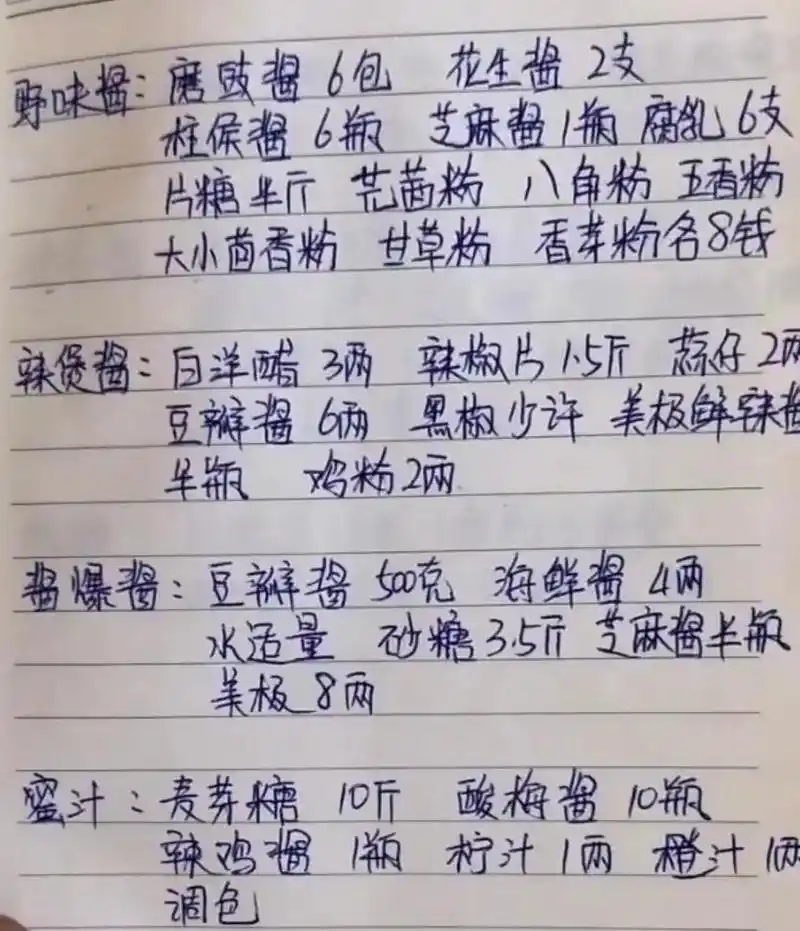 野味酱：磨豉酱 6包 花生酱 2支
柱侯酱 6瓶 芝麻酱1瓶 腐乳 6支
片糖半斤 芫茜粉 八角粉 五香粉
大小茴香粉 甘草粉 香芽粉各8钱
辣煲酱：白洋醋 3两 辣椒片1.5斤 蒜仔2两
豆瓣酱 6两 黑椒少许 美极鲜辣酱
半瓶 鸡粉2两
酱爆酱：豆瓣酱 500克 海鲜酱 4两
水适量 砂糖3.5斤 芝麻酱半瓶
美极 8两
蜜汁：麦芽糖 10斤 酸梅酱 10瓶
辣鸡酱 1瓶 柠汁1两 橙汁1两
调色